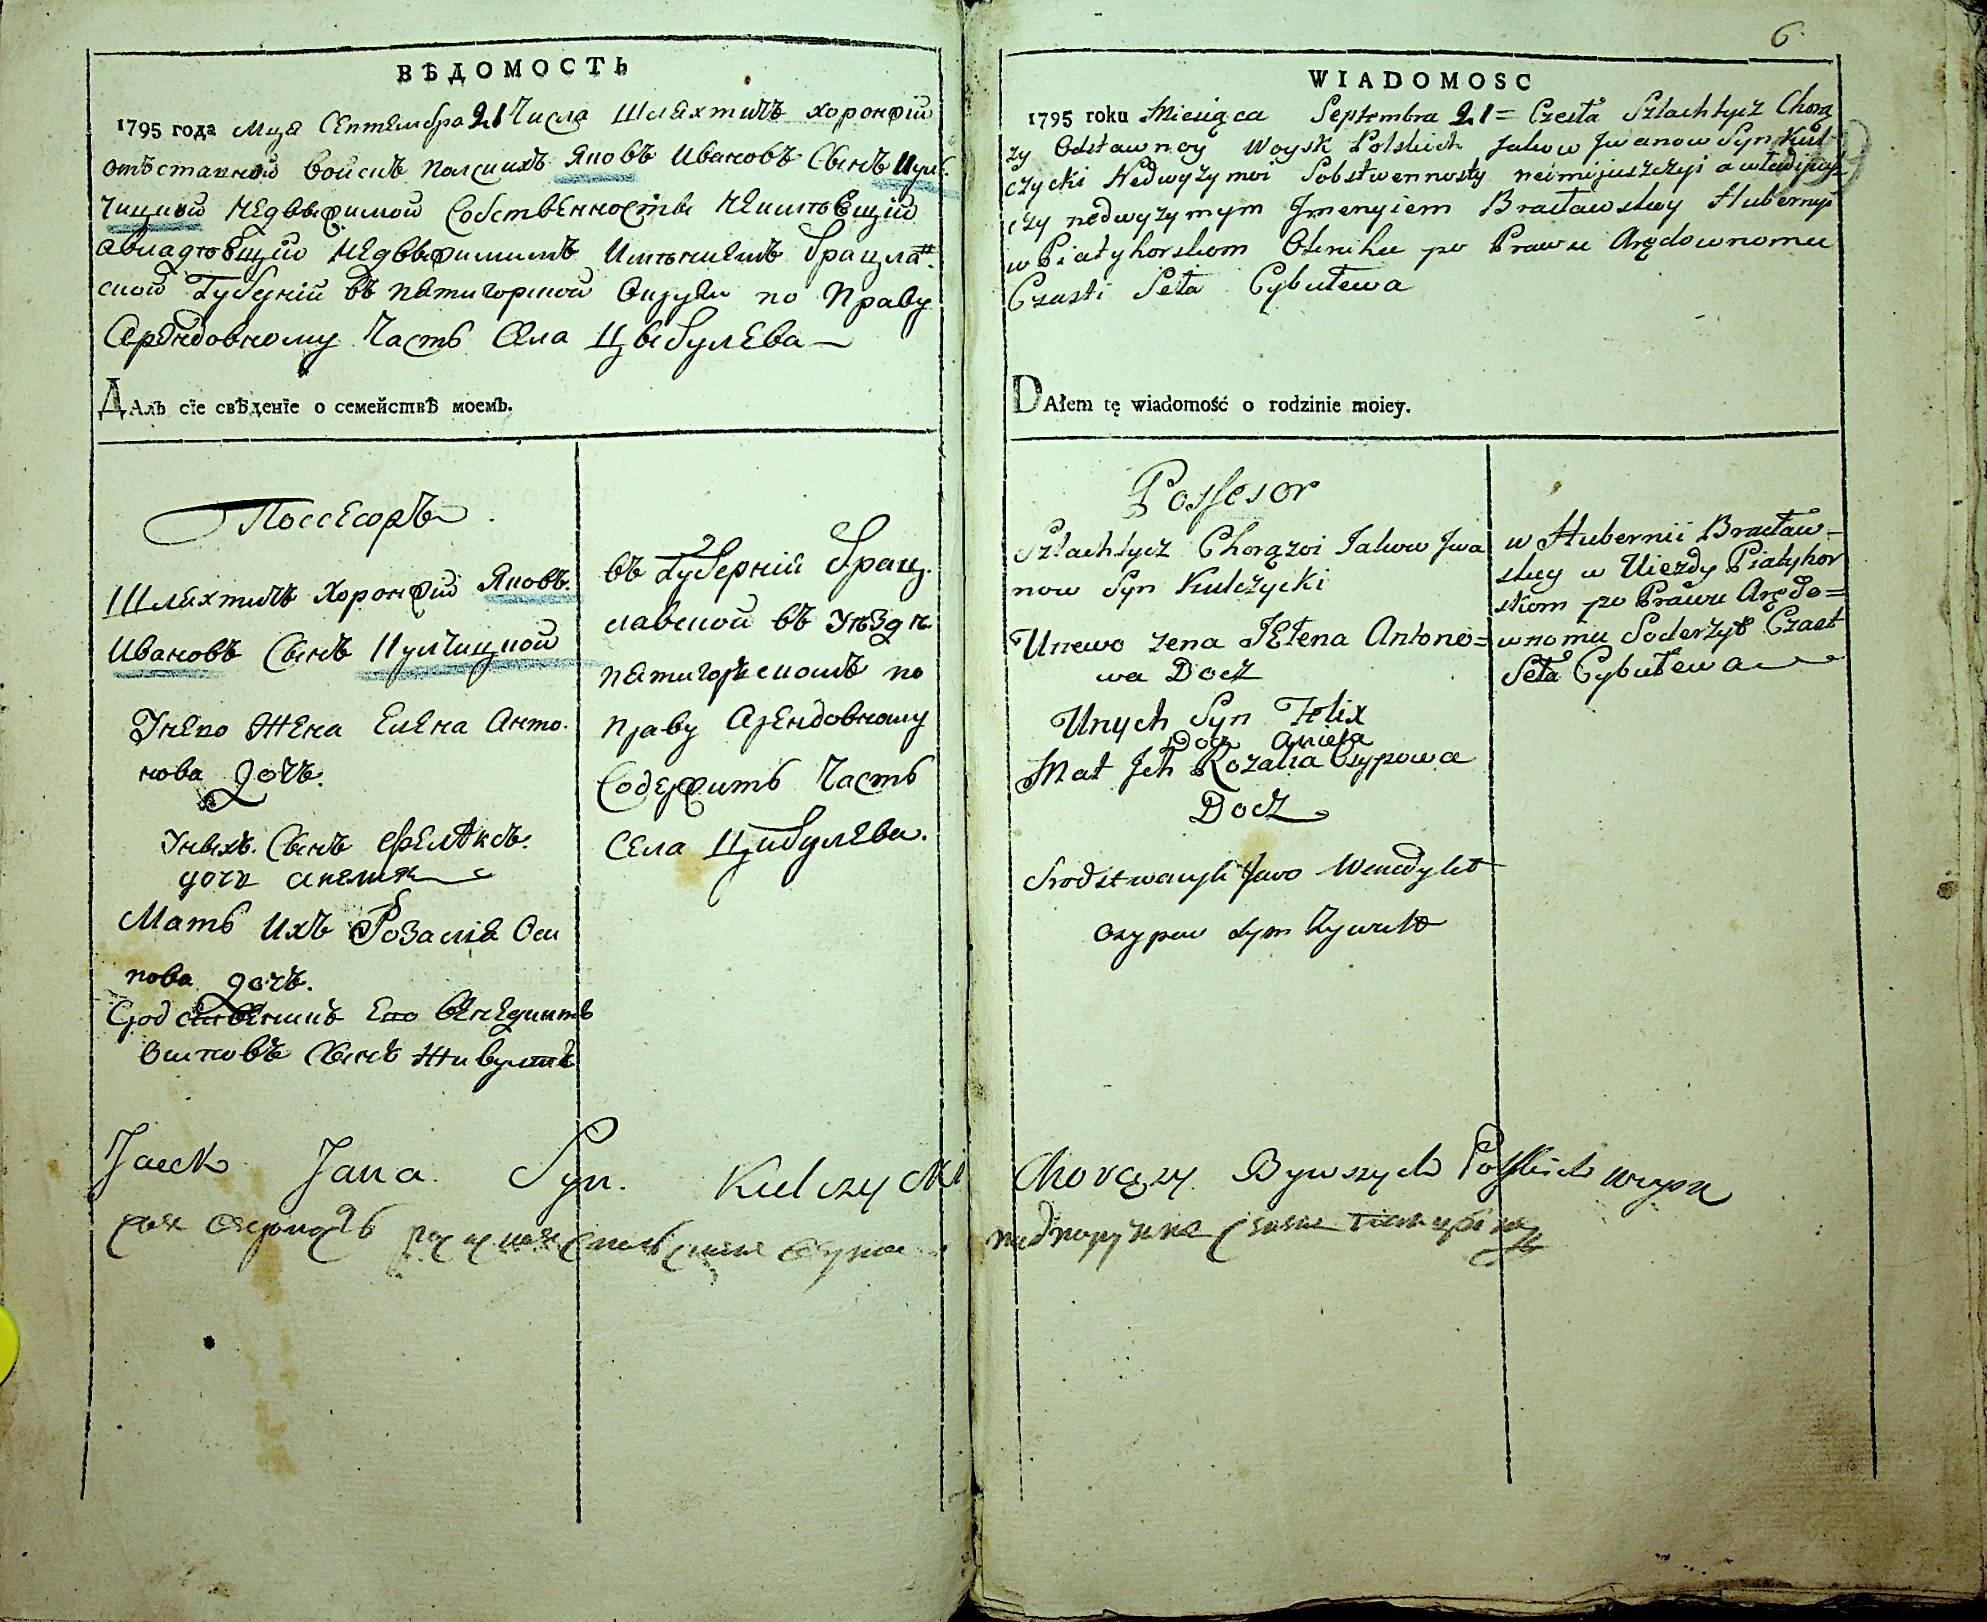 ВѢДОМОСТЬ
1795 года Мца Септемвра 21 Числа Шляхтичъ хоронжій
отъставной войскъ полскихъ Яковъ Ивановъ Сынъ Кул
чицкой недвыжимой Собственности неимѣющій
авладѣющій недвыжимимъ Имѣниемъ Брацла
ской Губерніи въ пятигорской округи по праву
Арендовному Часть Села Цыбулева
ДАлъ сіе свѣденіе о семействѣ моемъ.
Поссесоръ
Шляхтичъ хоронжій Яковъ
Ивановъ Сынъ Кулчицкой
Унево жена Елена Анто
нова дочъ.
Уныхъ Сынъ Феликсъ.
дочь анеля
Мать ихъ Розалія Оси
пова дочъ.
Сродственникъ Ево Венедиктъ
Осиповъ Сынъ Живултъ
въ Губерніи Брац
лавской въ уѣздѣ
пятигорскомъ по
праву Арендовному
Содержитъ Часть
Села Цибулева.
Jacek Jana Syn. Kulczycki
6
WIADOMOSC
1795 roku Miesiąca Septembra 21 = Czesła Szlachtycz Chorą
zy Odstawnoy Woysk Polskich Jakow Jwanow Syn Kul
czycki Nedwyzymoi Sobstwennosty neimijuszczyi awładijusz
czy nedwyzymym Jmenyiem Bracławskoy Hubernyi
w Piatyhorskom Okruhu po Prawu Arędownomu
Czasti Seła Cybulewa
DAłem tę wiadomość o rodzinie moiey.
Possesor
Szlachtycz Chorązoi Jakow Jwa
now Syn Kulczycki
Unewo zena JEłena Antono=
wa Docz
Unych Syn Felix
Docz Anieła
Mat Jch Rozalia Osypowa
Docz
Srodstwenyk Jewo Wenedykt
Osypow Syn Zywult
w Hubernii Bracław=
skoy w Uiezdy Piatyhor
skom po Prawu Arędo=
wnomu Soderzyt Czast
Seła Cybulewa
Chorązy Bywszych Polskich woysk